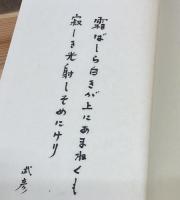 霜ばしら白きが上にあまねくも
寂しき光射しそめにけり
武彦